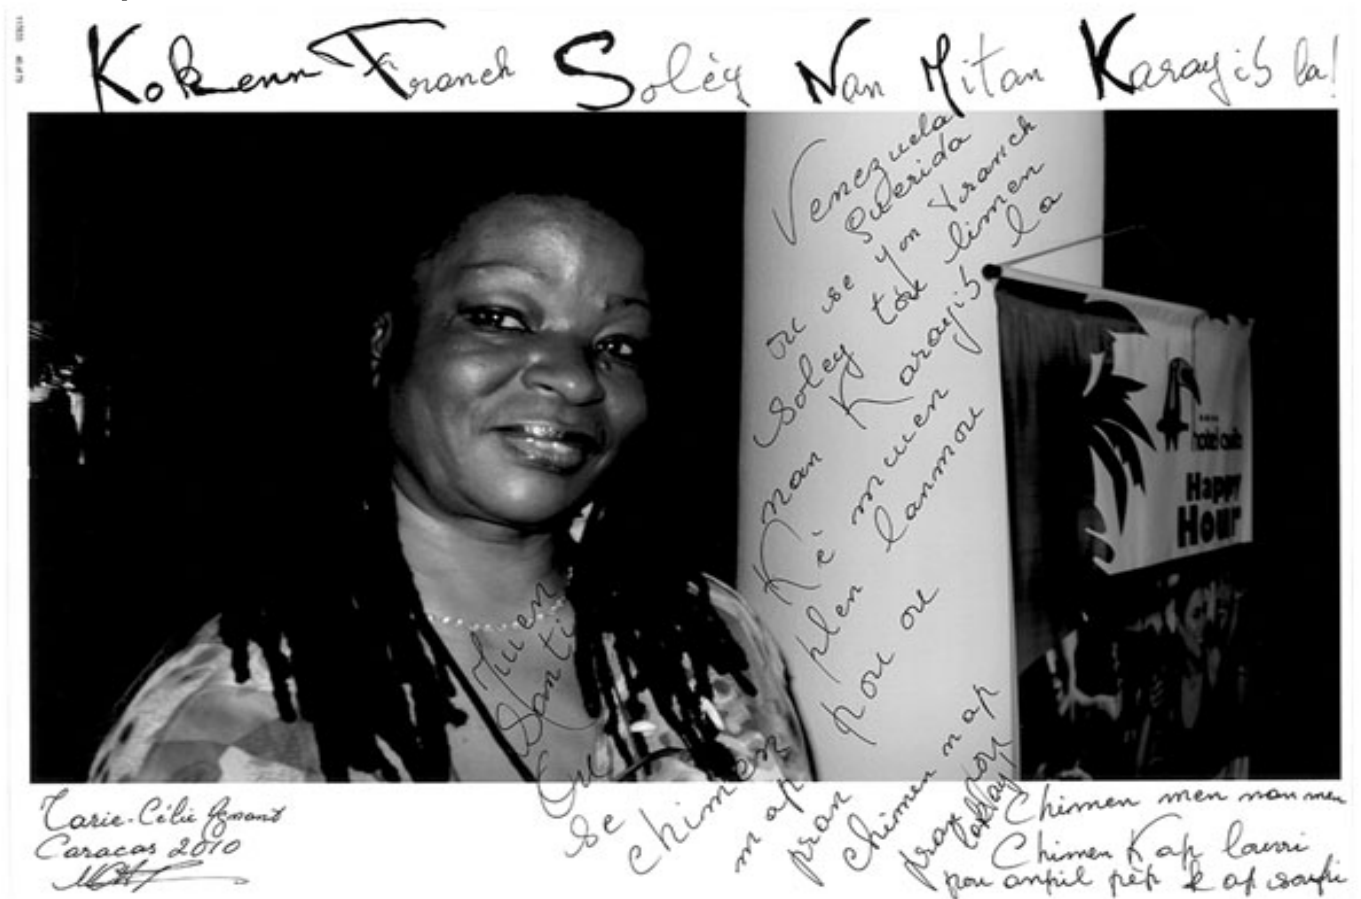 Kokenn Tranch Solèy Nan Mitan Karayib la!
Venezuela
Querida
ou se yon tranch
soley tou limen
nan Karayib la
Kè mwen
plen lanmou
pou ou
Mwen
Santi
Ou
se
chimen
m ap
pran
Chimen n ap
pran pou
Chimen men nan men
Chimen K ap louvri
pou anpil pèp k ap soufri
hotel
Happy
Hour
Marie-Célie Agnant
Caracas 2010